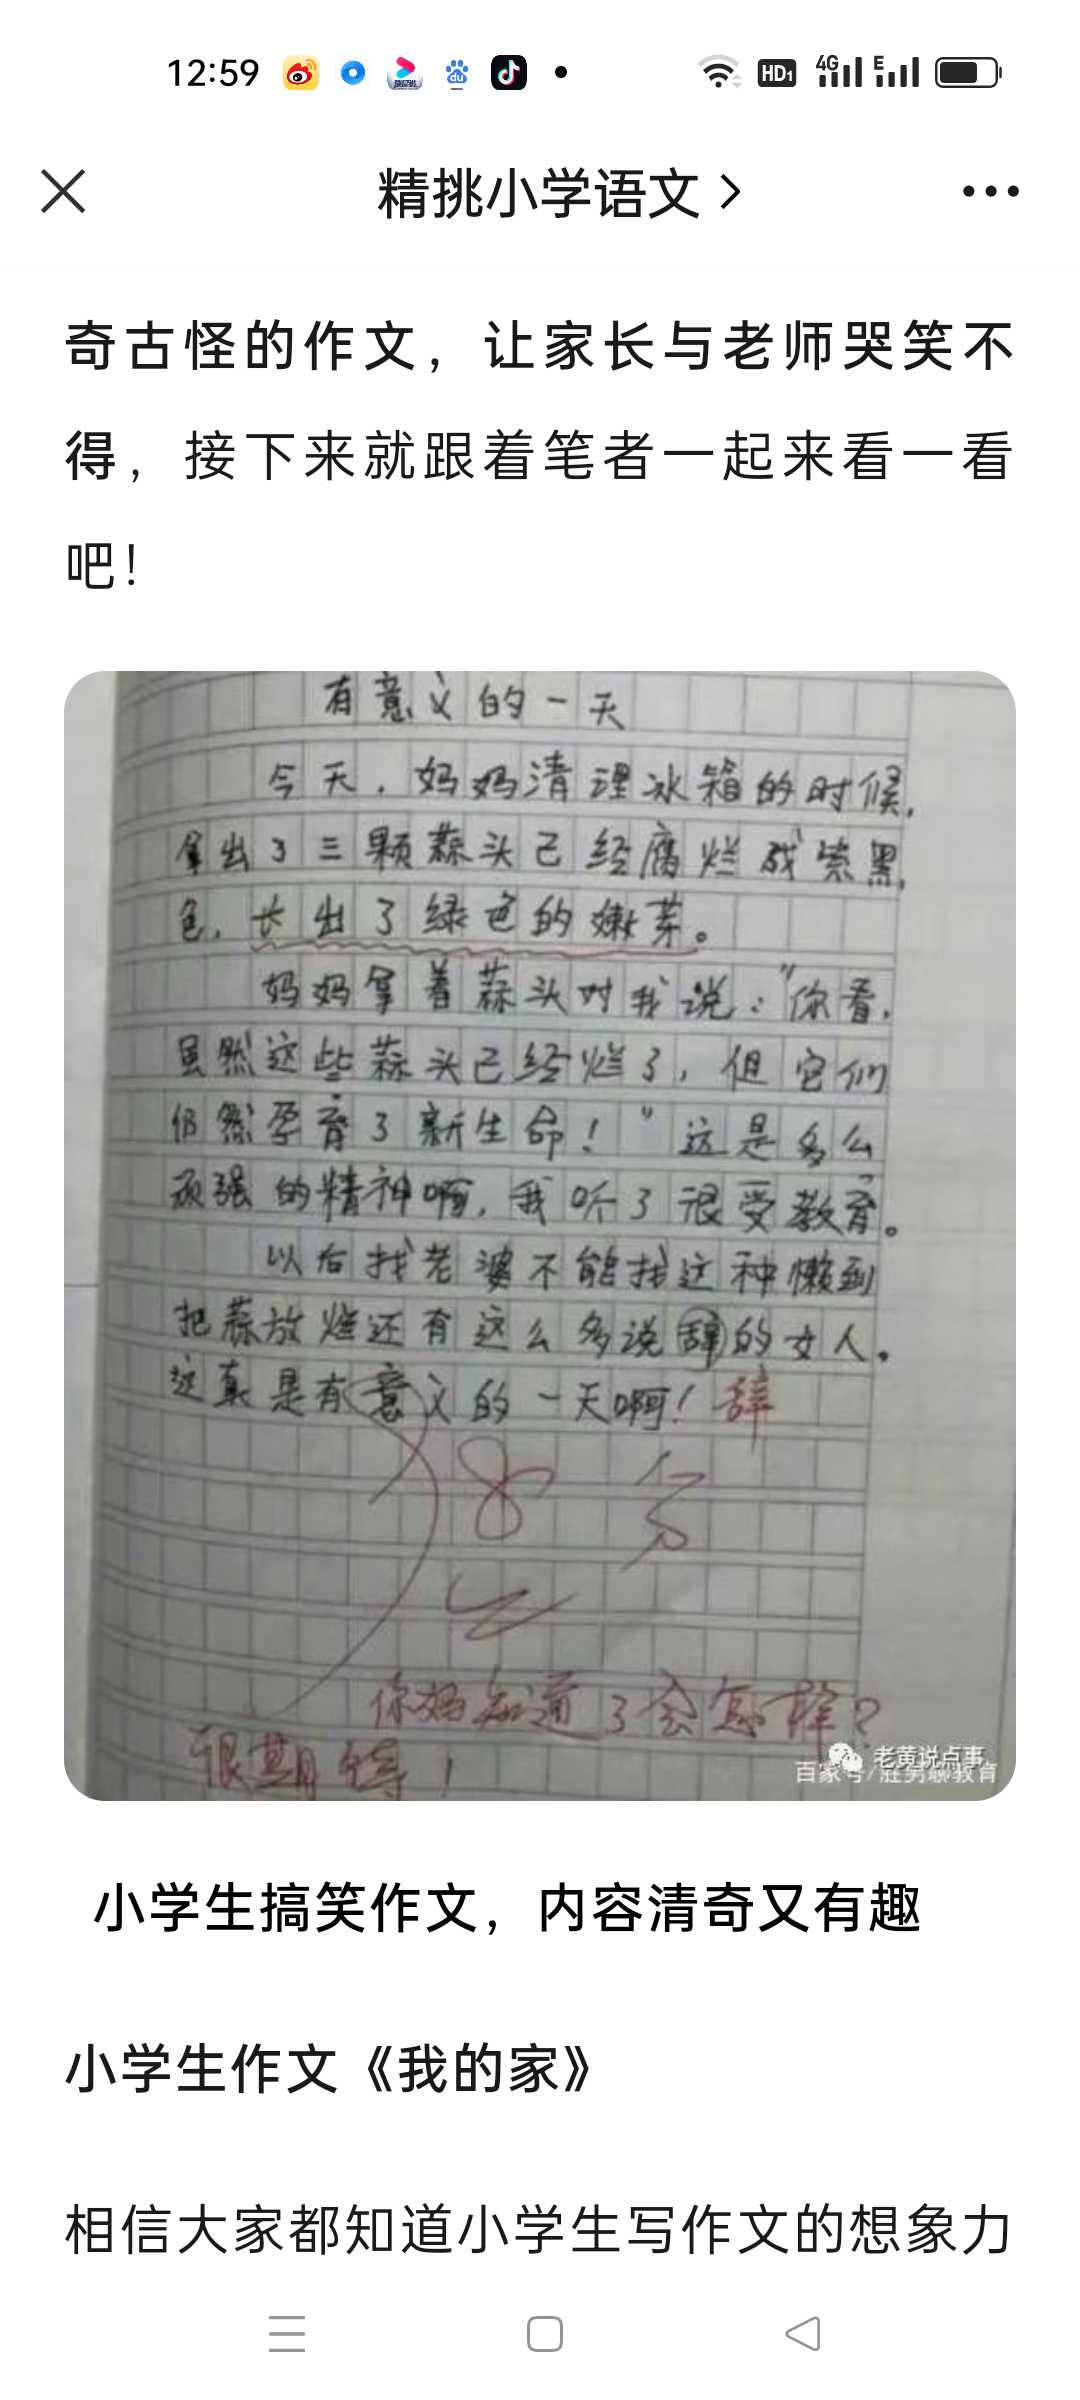 12:59
HD1 4G E
精挑小学语文
奇古怪的作文，让家长与老师哭笑不
得，接下来就跟着笔者一起来看一看
吧！
有意义的一天
今天，妈妈清理冰箱的时候，
拿出了三颗蒜头已经腐烂成紫黑
色，长出了绿色的嫩芽。
妈妈拿着蒜头对我说："你看，
虽然这些蒜头已经烂了，但它们
仍然孕育了新生命！"这是多么
顽强的精神啊，我听了很受教育。
以后找老婆不能找这种懒到
把蒜放烂还有这么多说辞的女人。
这真是有意义的一天啊！辞
98分
你妈知道了会怎样？
很期待！
老黄说点事
百家号/
教育
小学生搞笑作文，内容清奇又有趣
小学生作文《我的家》
相信大家都知道小学生写作文的想象力